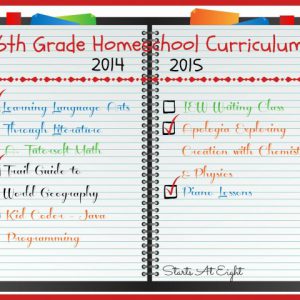 6th Grade Homeschool Curriculum
2014 2015
Learning Language Arts
Through Literature
C. Tutorsoft Math
Trail Guide to
World Geography
Kid Coder - Java
Programming
IEW Writing Class
Apologia Exploring
Creation with Chemist
& Physics
Piano Lessons
Starts At Eight